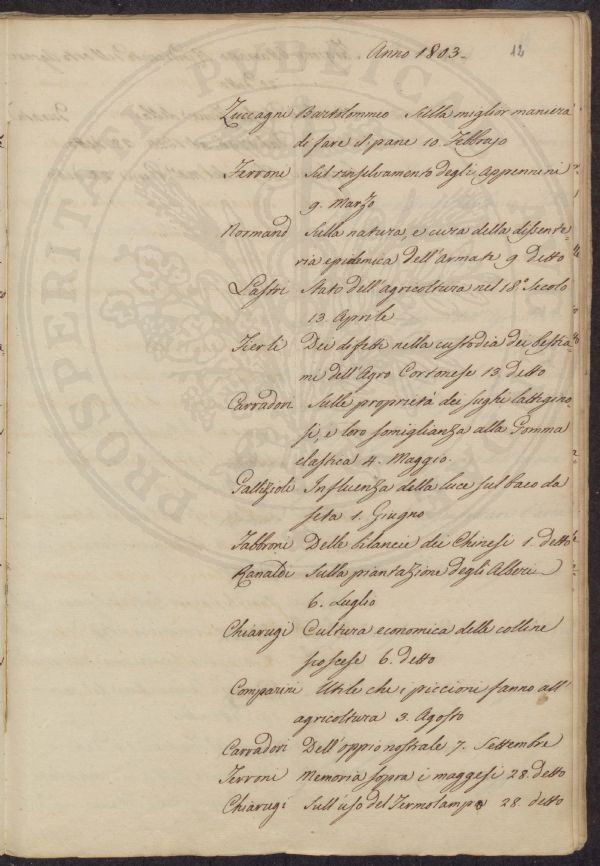 Anno 1803. 12
Zuccagni Bartolommeo Sulla miglior maniera
di fare il pane 10. Febbrajo
Ferroni Sul rinselvamento degli Appennini
9. Marzo
Normand Sulla natura, e cura della dissente=
ria epidemica dell'Armate 9 detto
Lastri Stato dell'agricoltura nel 18.° Secolo
13. Aprile
Fierli Dei difetti nella custodia dei bestia=
mi dell'Agro Cortonese 13. detto
Carradori Sulle proprietà dei sughi lattigino=
si, e loro somiglianza alla Gomma
elastica 4. Maggio.
Gallizioli Influenza della luce sul baco da
seta 1. Giugno
Fabbroni Delle bilancie dei Chinesi 1. detto
Ranaldi Sulla piantazione degli Alberi
6. Luglio
Chiarugi Cultura economica delle colline
scoscese 6. detto
Comparini Utile che i piccioni fanno all'
agricoltura 3. Agosto
Carradori Dell'oppio nostrale 7. Settembre
Ferroni Memoria sopra i maggesi 28. detto
Chiarugi Sull'uso del Termolampo 28 detto
PROSPERITATI PUBLICAE